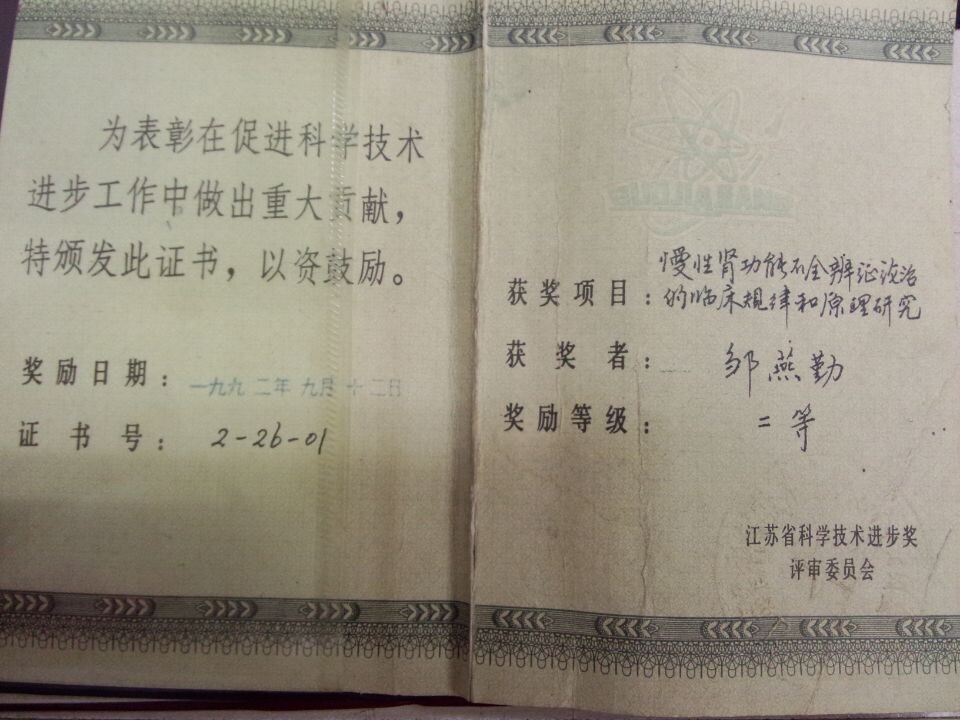 为表彰在促进科学技术
进步工作中做出重大贡献，
特颁发此证书，以资鼓励。
奖励日期：一九九二年九月十二日
证书号：2-26-01
获奖项目：慢性肾功能不全辨证论治
的临床规律和原理研究
获奖者：邹燕勤
奖励等级：二等
江苏省科学技术进步奖
评审委员会